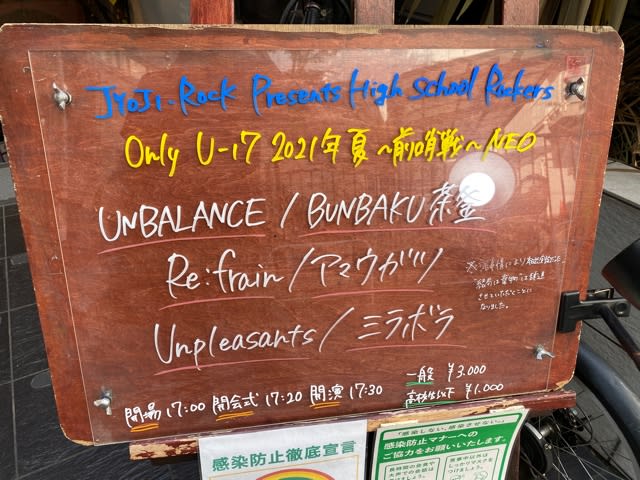 JYOJI-ROCK Presents High School Rockers
Only U-17 2021年 夏 ~前哨戦~ NEO
UNBALANCE / BUNBAKU茶釜
Re:frain / アマウガツ
Unpleasants / ミラボラ
開場 17:00 開会式 17:20 開演 17:30
一般 ¥3.000
高校生以下 ¥1.000
なりました。
感染防止徹底宣言
「感染しない、感染させない」
感染防止マナーへの
ご協力をお願いいたします。